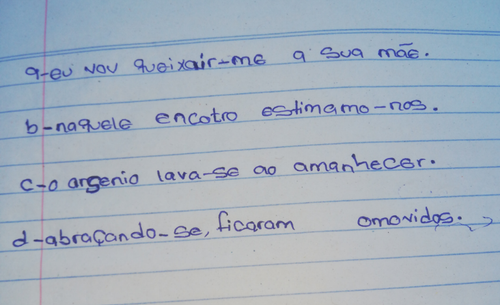 a-eu vou queixair-me a sua mãe.
b-naquele encotro estimamo-nos.
c-o argenio lava-se ao amanhecer.
d-abraçando-se, ficaram omovidos.